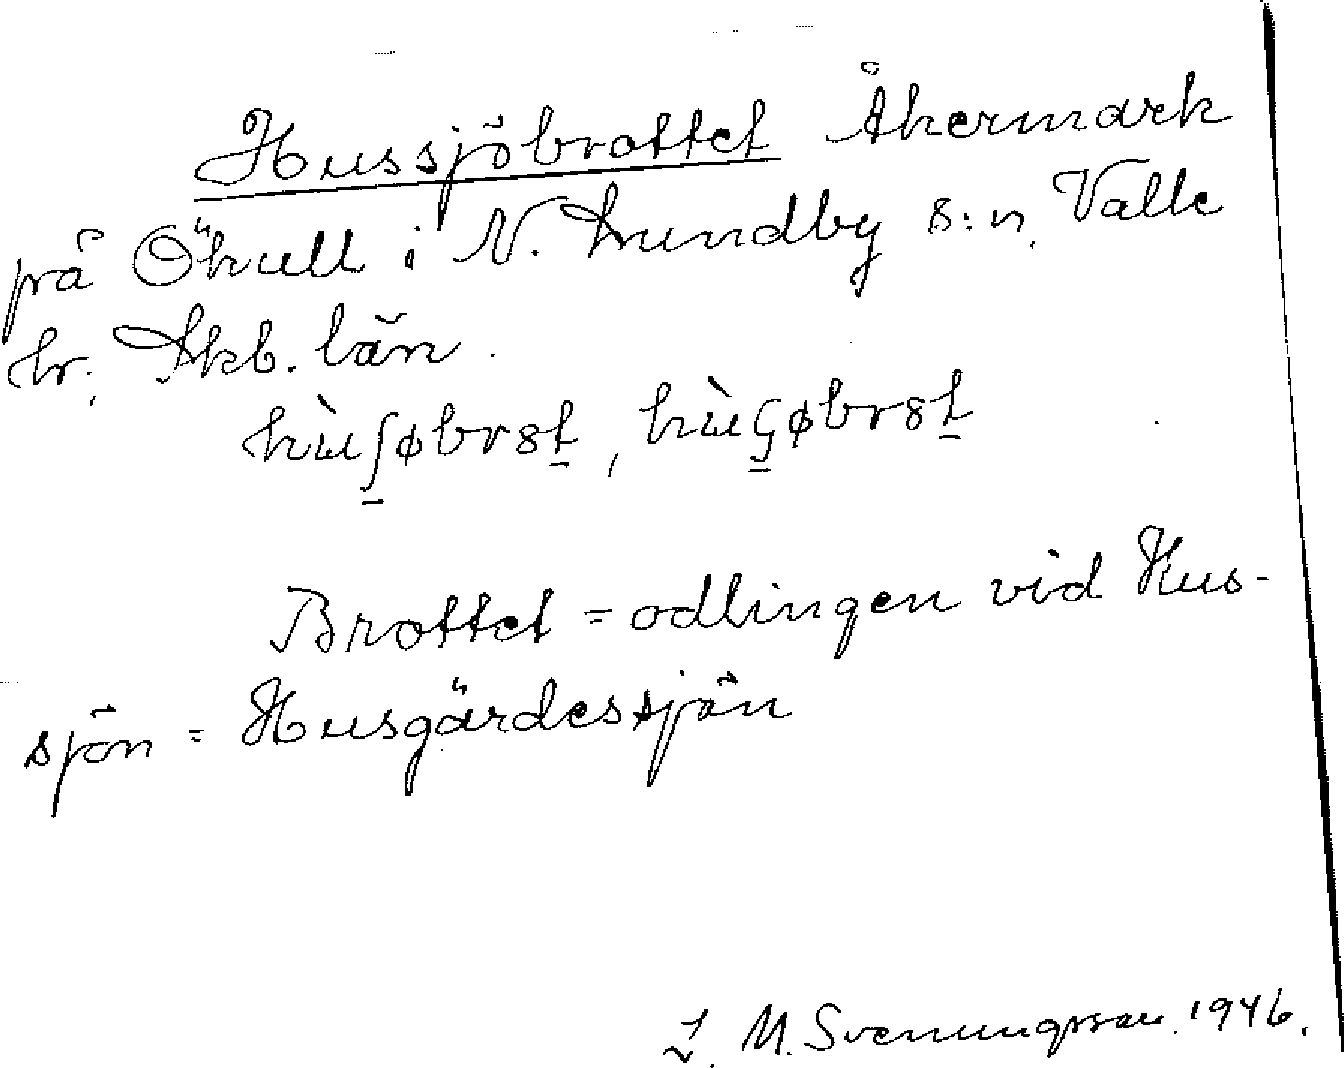 Hussjöbrottet Åkermark
på Ökull i N. Lundby s:n, Valle
hr; Skb. län.
Brottet = odlingen vid Hus-
sjön = Husgärdessjön
M. Svenungsson. 1946.